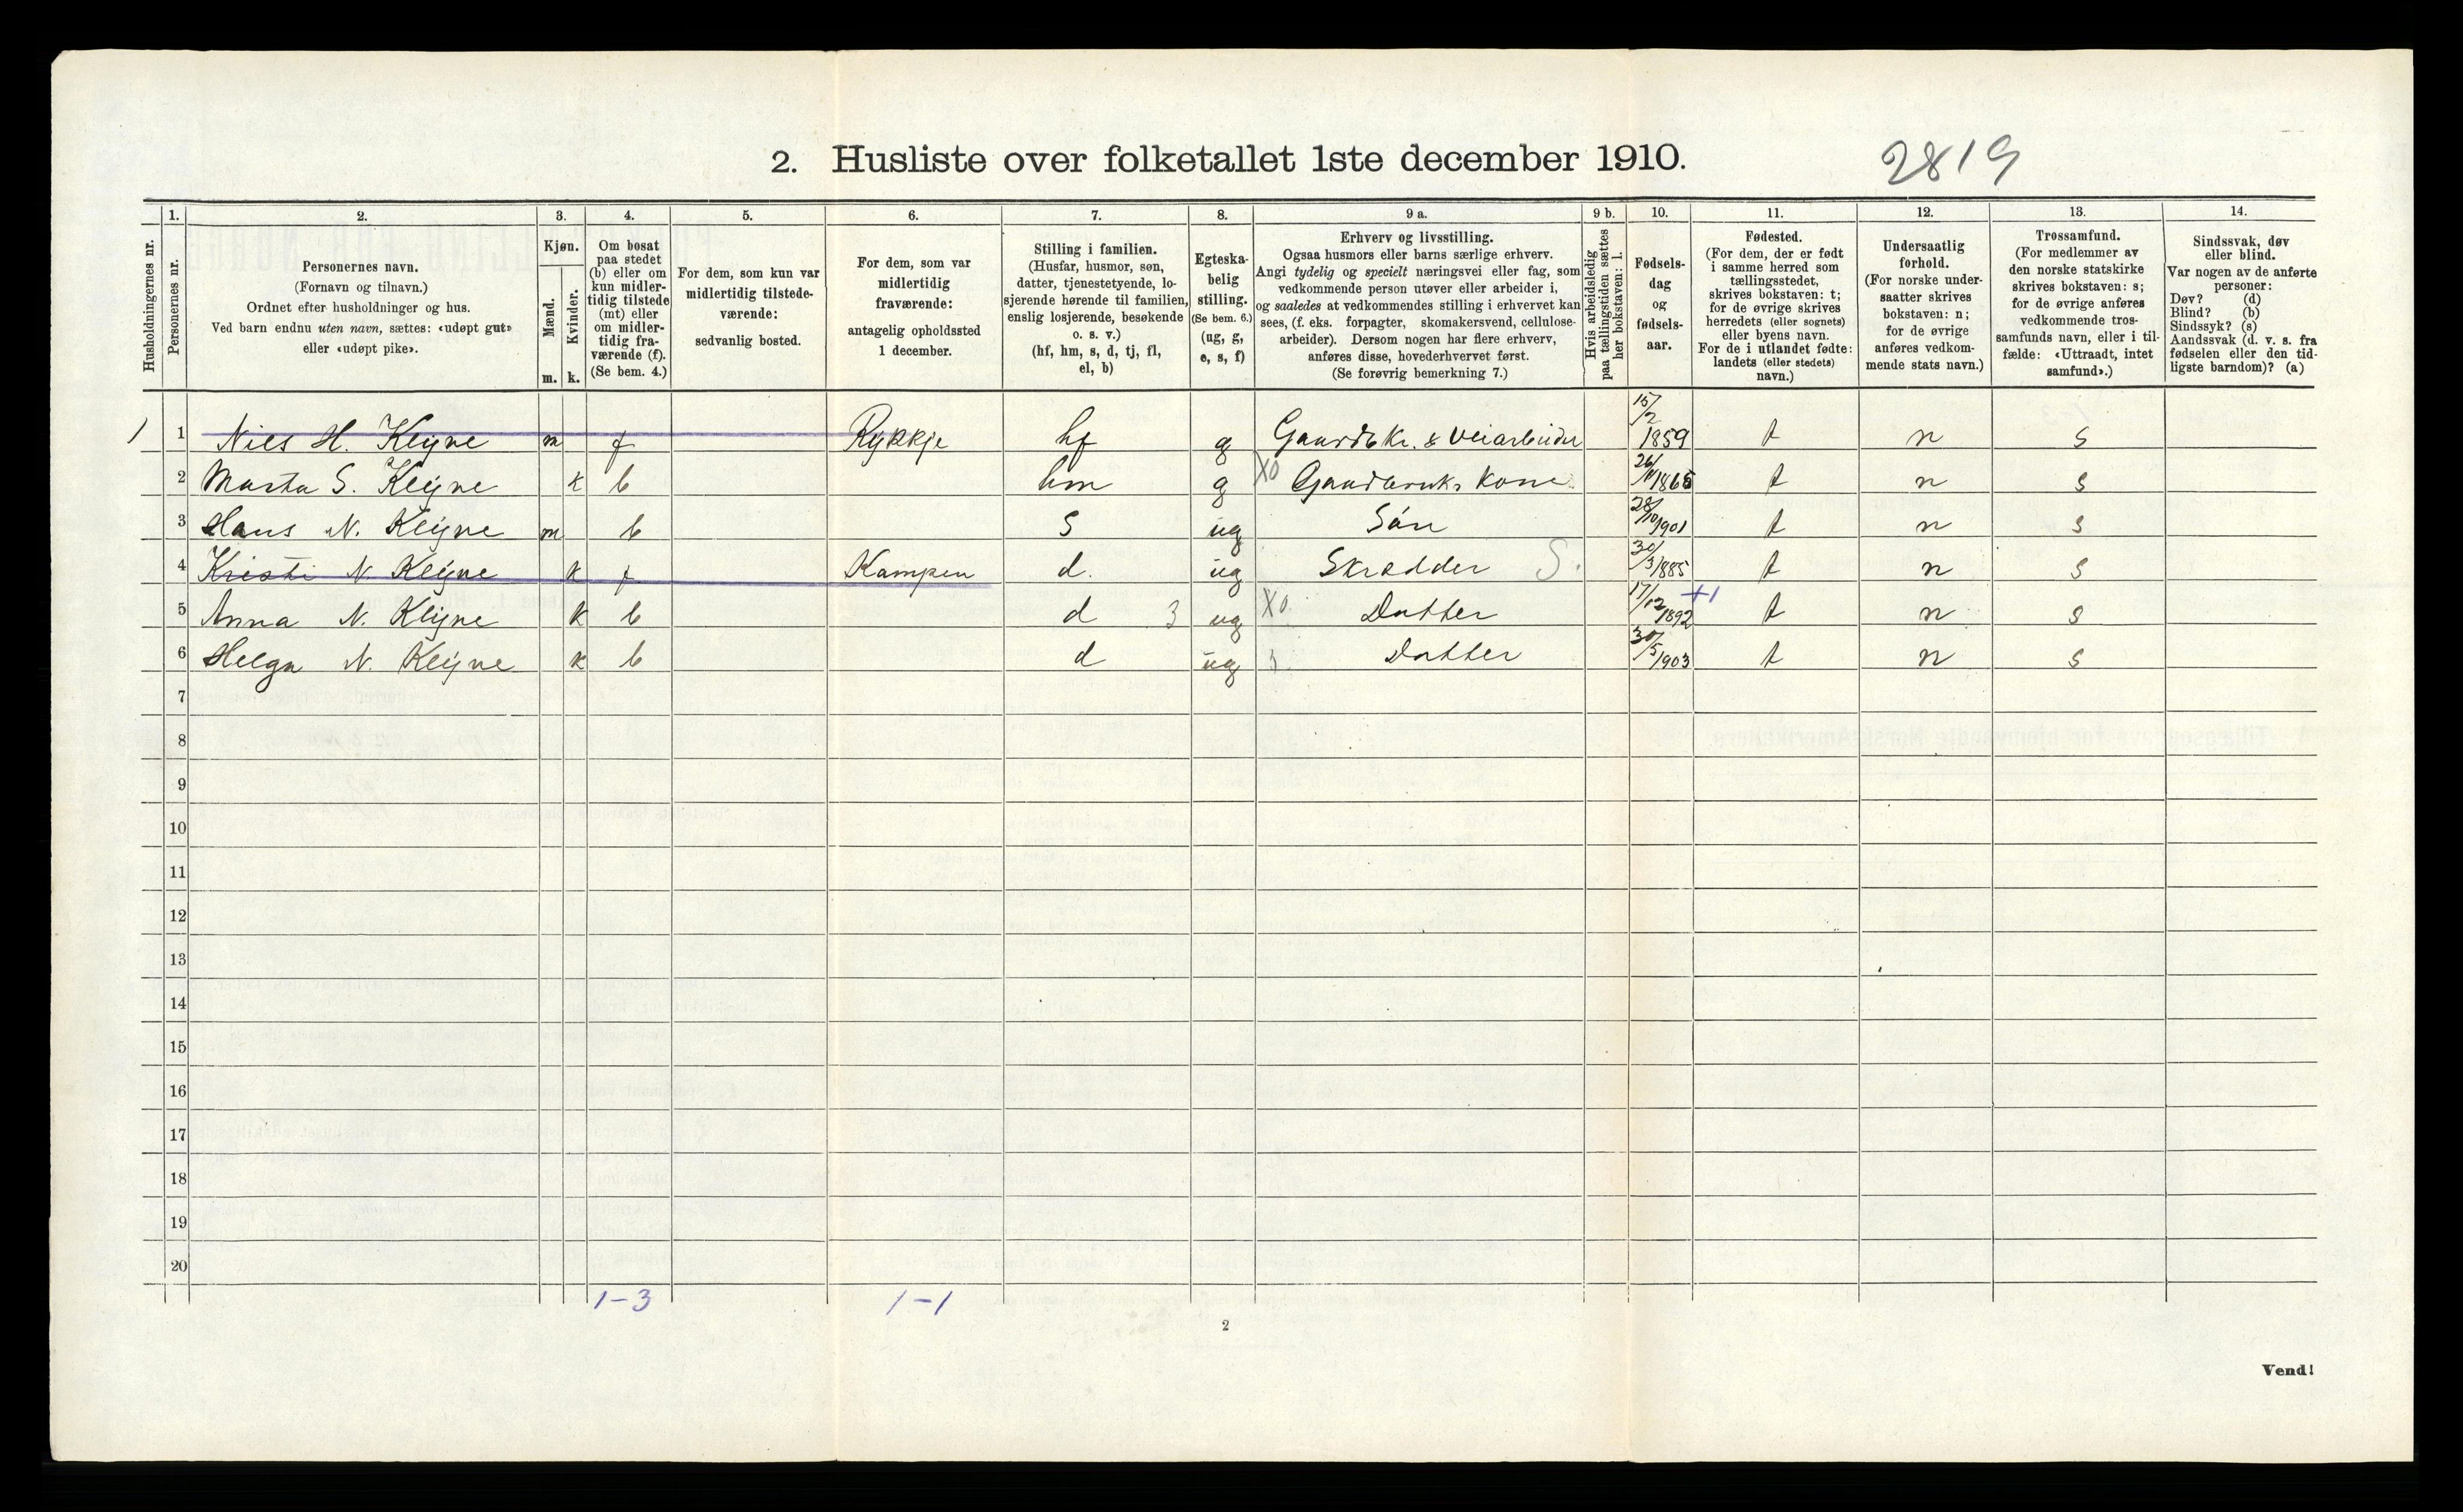 2. Husliste over folketallet 1ste december 1910.
2819
Husholdningernes nr.
1.
Personernes nr.
2.
Personernes navn.
(Fornavn og tilnavn.)
Ordnet efter husholdninger og hus.
Ved barn endnu uten navn, sættes: «udøpt gut»
eller «udøpt pike».
3.
Kjøn.
Mænd.
m.
Kvinder.
k.
4.
Om bosat
paa stedet
(b) eller om
kun midler-
tidig tilstede
(mt) eller
om midler-
tidig fra-
værende (f).
(Se bem. 4.)
5.
For dem, som kun var
midlertidig tilstede-
værende:
sedvanlig bosted.
6.
For dem, som var
midlertidig
fraværende:
antagelig opholdssted
1 december.
7.
Stilling i familien.
(Husfar, husmor, søn,
datter, tjenestetyende, lo-
sjerende hørende til familien,
enslig losjerende, besøkende
o. s. v.)
(hf, hm, s, d, tj, fl,
el, b)
8.
Egteska-
belig
stilling.
(Se bem. 6.)
(ug, g,
e, s, f)
9 a.
Erhverv og livsstilling.
Ogsaa husmors eller barns særlige erhverv.
Angi tydelig og specielt næringsvei eller fag, som
vedkommende person utøver eller arbeider i,
og saaledes at vedkommendes stilling i erhvervet kan
sees, (f. eks. forpagter, skomakersvend, cellulose-
arbeider). Dersom nogen har flere erhverv,
anføres disse, hovederhvervet først.
(Se forøvrig bemerkning 7.)
9 b.
Hvis arbeidsledig
paa tællingstiden sættes
her bokstaven: l.
10.
Fødsels-
dag
og
fødsels-
aar.
11.
Fødested.
(For dem, der er født
i samme herred som
tællingsstedet,
skrives bokstaven: t;
for de øvrige skrives
herredets (eller sognets)
eller byens navn.
For de i utlandet fødte:
landets (eller stedets)
navn.)
12.
Undersaatlig
forhold.
(For norske under-
saatter skrives
bokstaven: n;
for de øvrige
anføres vedkom-
mende stats navn.)
13.
Trossamfund.
(For medlemmer av
den norske statskirke
skrives bokstaven: s;
for de øvrige anføres
vedkommende tros-
samfunds navn, eller i til-
fælde: «Uttraadt, intet
samfund».)
14.
Sindssvak, døv
eller blind.
Var nogen av de anførte
personer:
Døv? (d)
Blind? (b)
Sindssyk? (s)
Aandssvak (d. v. s. fra
fødselen eller den tid-
ligste barndom)? (a)
1 1 Niels H. Kleyve m f Rykkje hf g Gaardbr. & Veiarbeider 15/2 1859 t n s
2 Marta S. Kleyve k b hm g X0 Gaardbruks kone 26/ t n s
3 Hans N. Kleyve m b s ug Sön 28/10 1901 t n s
4 Kristi N. Kleyve k f Kampen d. ug Skrædder S. 30/3 1885 t n s
5 Anna N. Kleyve k b d 3 ug X0. Datter 17/12 1892 +1 t n s
6 Helga N. Kleyve k b d ug Datter 30/5 1903 t n s
7
8
9
10
11
12
13
14
15
16
17
18
19
20
1-3 1-1
2
Vend!